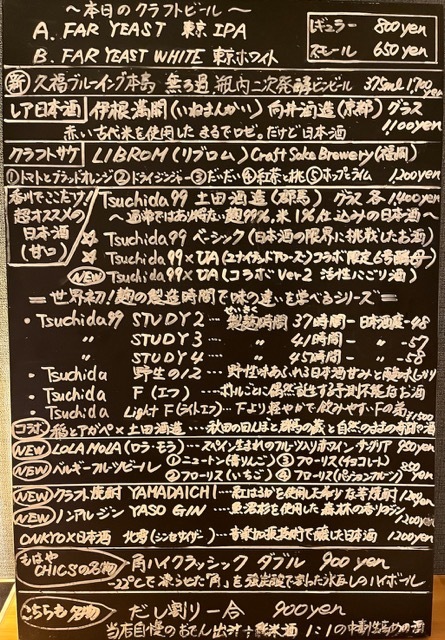 ～本日のクラフトビール～
A. FAR YEAST 東京IPA
B. FAR YEAST WHITE 東京ホワイト
レギュラー 800yen
スモール 650yen
新 久福ブルーイング本島 無ろ過 瓶内二次発酵ビンビール 375ml 1,700yen
レア日本酒 伊根満開(いねまんかい) 向井酒造(京都) グラス 1,100yen
赤い古代米を使用したまるでロゼ。だけど日本酒
クラフトサケ LIBROM(リブロム) Craft Sake Brewery(福岡)
①トマトとブラッドオレンジ ②ドライジンジャー ③だいだい ④紅茶と桃 ⑤ホップライム 1,200yen
香川でここだけ!
超オススメの
日本酒
(甘口)
Tsuchida99 土田酒造(群馬) グラス各1,400yen
～通常ではあり得ない麹99%、米1%仕込みの日本酒～
☆ Tsuchida99 ベーシック(日本酒の限界に挑戦したお酒)
☆ Tsuchida99×UA(ユナイテッドアローズ)コラボ限定6号酵母
NEW Tsuchida99×UA(コラボVer2 活性にごり酒)
＝世界初!麹の製造時間で味の違いを学べるシリーズ＝
・Tsuchida99 STUDY 2 … 製麹時間 せいきく 37時間－日本酒度-48
〃 STUDY 3 … 〃 41時間－ 〃 -57
〃 STUDY 4 … 〃 45時間－ 〃 -58
・Tsuchida 野生の12 … 野性味あふれる日本酒
・Tsuchida F(エフ) … ボトルごとに偶然誕生する予測不能なお酒
・Tsuchida Light F(ライトエフ) … Fより軽やかで飲みやすいFの
コラボ 稲とアガベ×土田酒造 … 秋田の田んぼと群馬の蔵と自然のままの
NEW LOLA MOLA(ロラ・モラ) … スペイン生まれのフルーツ入りホワイトサングリア 950yen
NEW ベルギーフルーツビール ①ニュートン(青りんご) ③フローリス(チョコレート) 850yen
②フローリス(いちご) ④フローリス(パッションフルーツ)
NEW クラフト焼酎 YAMADAICHI … 紅はるかを使用した香りな芋焼酎
NEW ノンアルジン YASO GIN … 魚沼杉を使用した森林の香り 1,200yen
ONKYO×日本酒 北雪 … 音楽加振技術で醸した日本酒 1,200yen
もはやCHICSの名物 角ハイクラシック ダブル 900yen
-22℃で凍らせた「角」を強炭酸で割った氷なしのハイボール
こちらも名物 だし割り一合 900yen
当店自慢のおでん出汁+純米酒 1:1の中毒性高めの酒